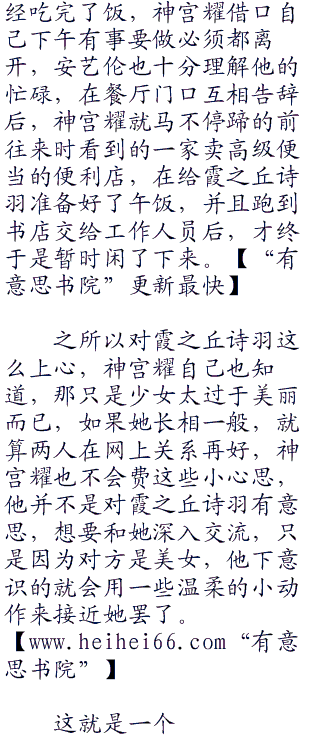 经吃完了饭，神宫耀借口自
己下午有事要做必须都离
开，安艺伦也十分理解他的
忙碌，在餐厅门口互相告辞
后，神宫耀就马不停蹄的前
往来时看到的一家卖高级便
当的便利店，在给霞之丘诗
羽准备好了午饭，并且跑到
书店交给工作人员后，才终
于是暂时闲了下来。【“有
意思书院”更新最快】
之所以对霞之丘诗羽这
么上心，神宫耀自己也知
道，那只是少女太过于美丽
而已，如果她长相一般，就
算两人在网上关系再好，神
宫耀也不会费这些小心思，
他并不是对霞之丘诗羽有意
思，想要和她深入交流，只
是因为对方是美女，他下意
识的就会用一些温柔的小动
作来接近她罢了。
【www.heihei66.com“有意
思书院”】
这就是一个